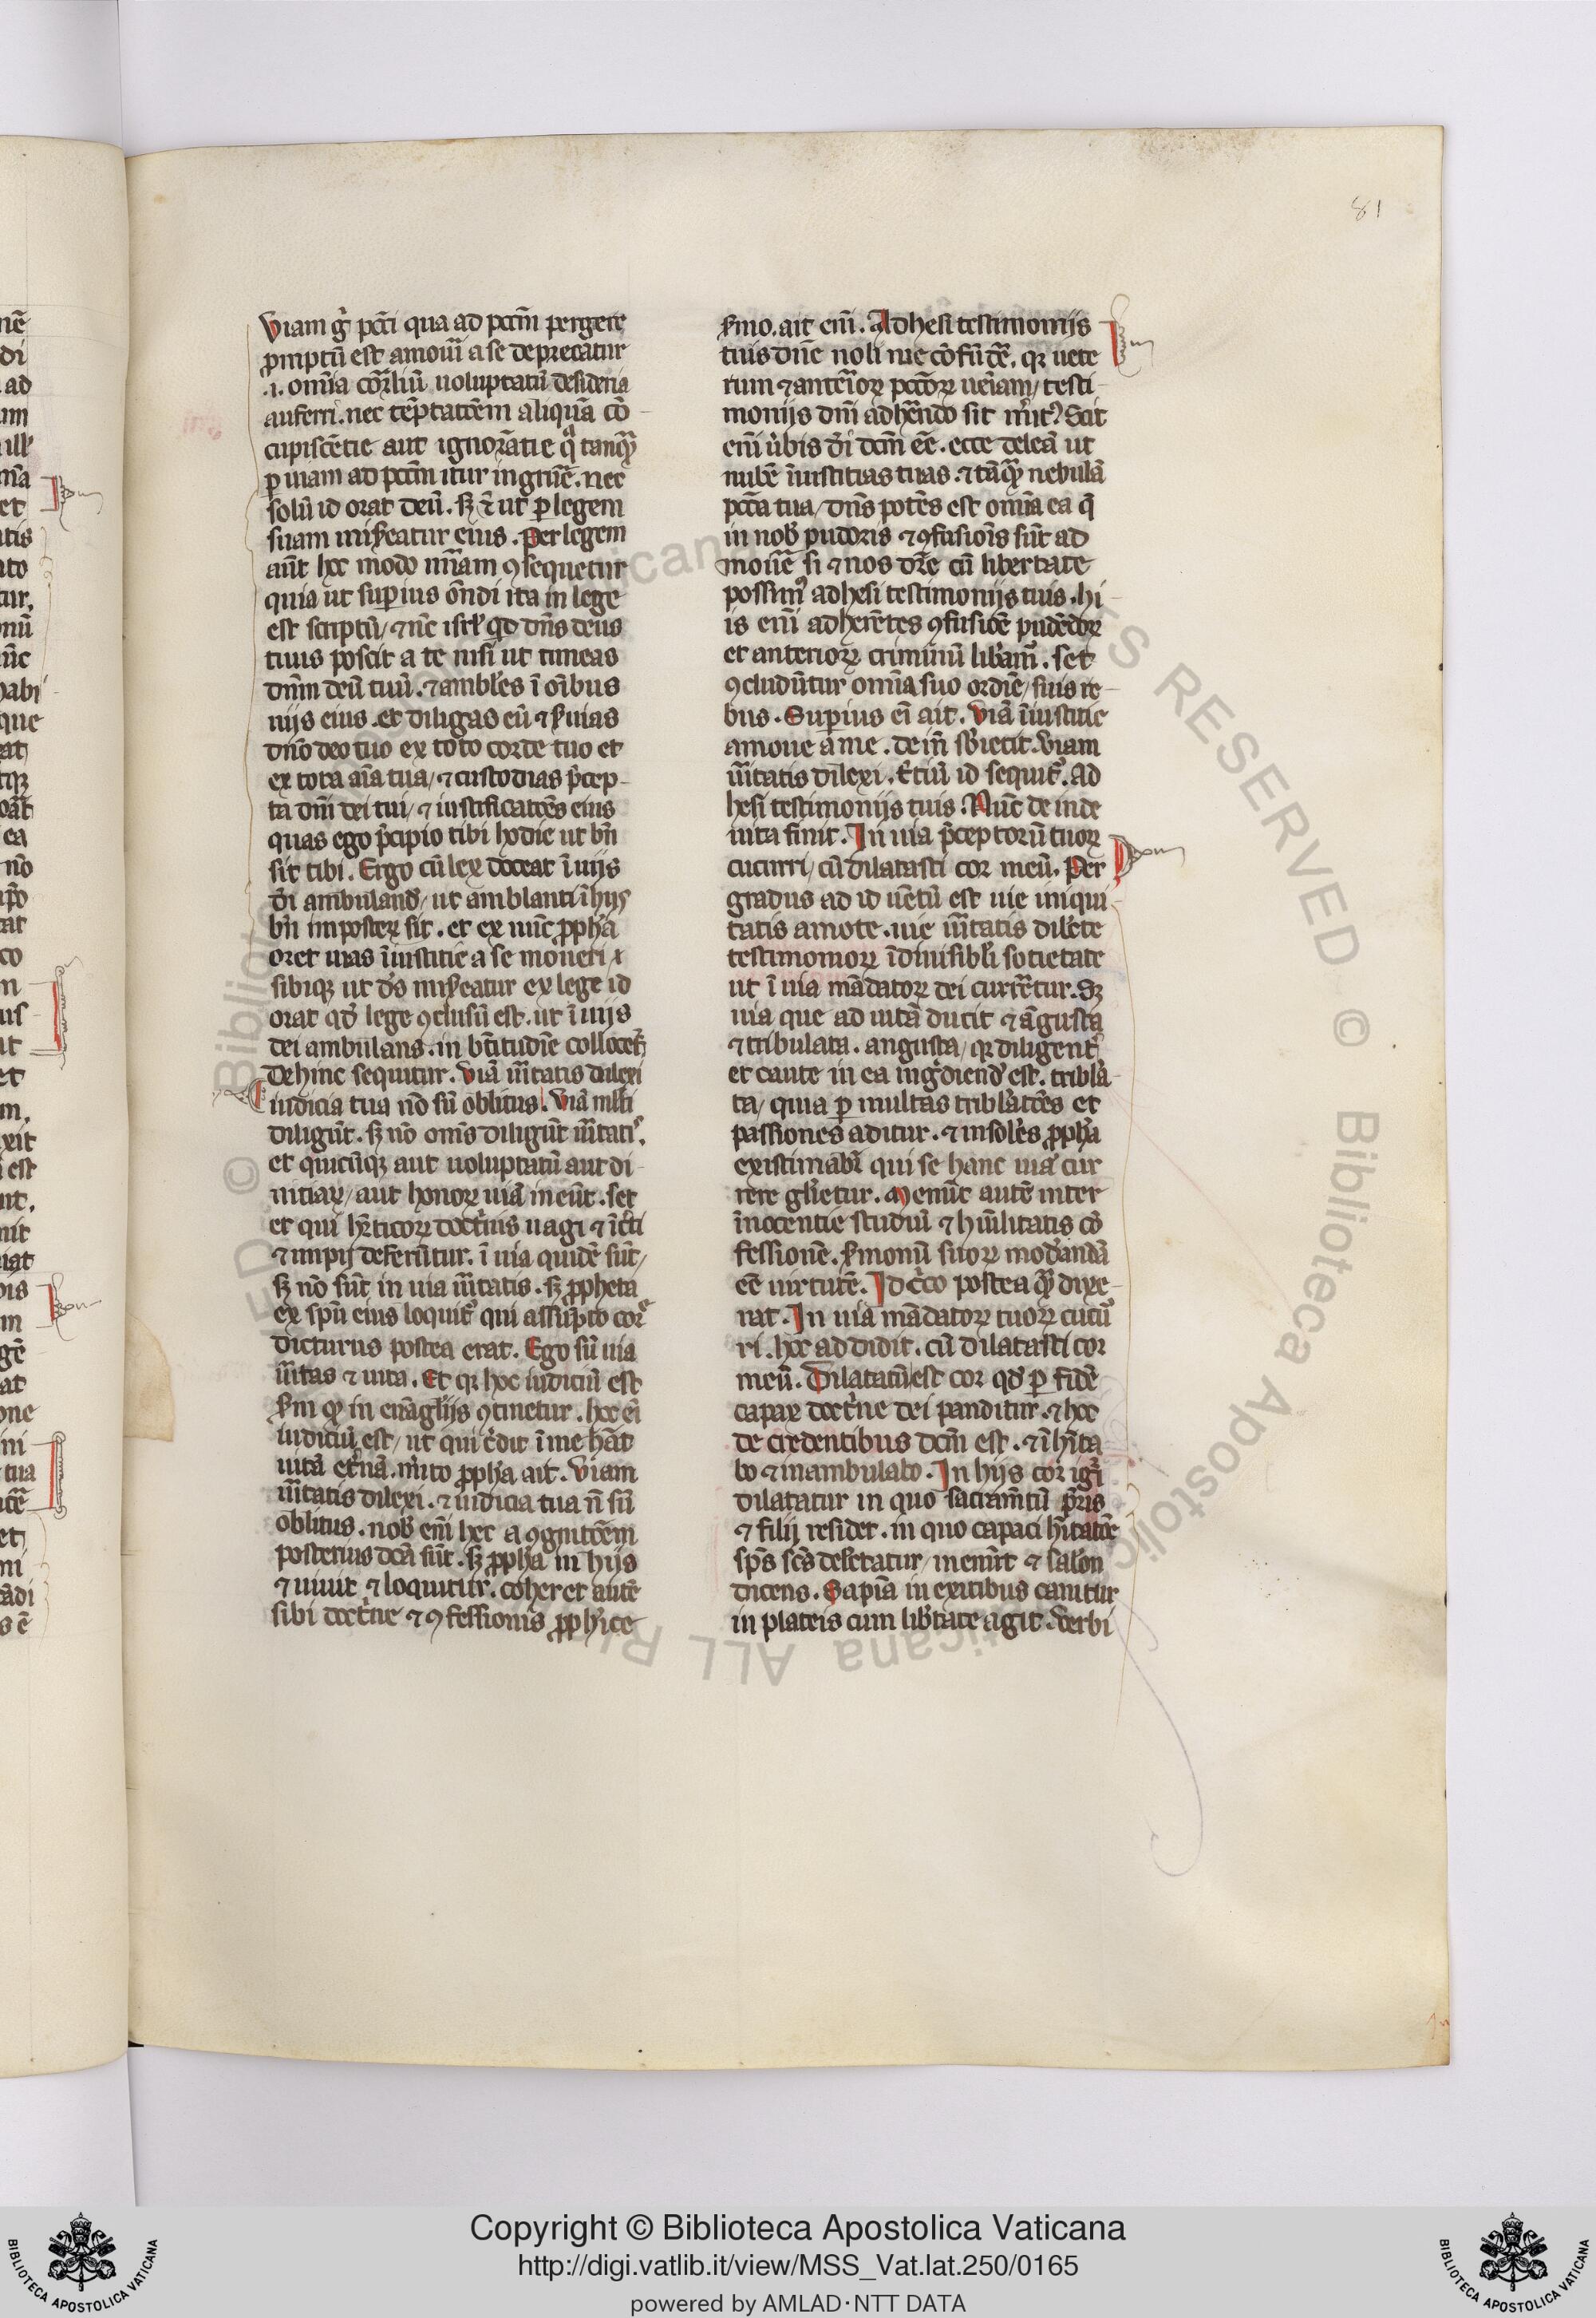 81
Viam gͥ pcc̄i qua ad pccm̄ pergere
ꝓmptū est amoūi a se deprecatur
.i. om̄ia cor̄aliū uoluptatū desideria
auferri. nec tēptatōem aliquā cō
cupiscētie aut ignorātie qͣ tanqͣꝫ
ꝑ uiam ad pccm̄ itur ingrūe. nec
solū id orat deū. sꝫ ⁊̄ ut ꝑ legem
suam mis̕eatur eius. Per legem
aūt hoc modo mīam ꝯsequetur
quia ut suꝑius ōndi ita in lege
est scriptū / ⁊ nūc isrl̕ qͥd dn̄s deus
tuus poscit a te nisi ut timeas
dnm̄ deū tuū. ⁊ ambl̕es ī oībus
uijs eius. et diligas eū ⁊ ẜuias
dn̄o deo tuo ex toto corde tuo et
ex tota aīa tua / ⁊ custodias p̄cep
ta dn̄i dei tui / ⁊ iustificatōes eius
quas ego p̄cipio tibi hodie ut bn̄
sit tibi. Ergo cū lex doceat ī uijs
dī ambuland̕ / ut amblanti ī hijs
bn̄ imposteꝝ sit. et ex nūc ꝓph̕a
oret uias īiustitie a se moueri ⁊
sibiqꝫ ut ds̄ mis̕eatur ex lege id
orat qd̕ lege ꝯclusū est. ut ī uijs
dei ambulans. in bt̄itudīe collocet̕
Dehinc sequitur. Viā ūitatis dilexi
iudicia tua nō sū oblitus. Viā ml̕ti
diligūt. sꝫ nō om̄s diligūt ūitatis.
et quicūqꝫ aut uoluptatū aut di
uitiaꝝ / aut honoꝝ uiā ineūt. set
et qui hr̄ticoꝝ doctͥnis uagi ⁊ īc̕ti
⁊ impij deferūtur. ī uia quidē sūt /
sꝫ nō sūt in uia ūitatis. sꝫ ꝓpheta
ex spū eius loquit̕ qui assūpto corꝑe
dicturus postea erat. Ego sū uia
ūitas ⁊ uita. Et qꝛ hoc iudiciū est
ẜm qͦꝫ in euāgl̕ijs ꝯtinetur. hoc eī
iudiciū est / ut qui c̕dit ī me hāt
uitā et̕nā. m̕ito ꝓph̕a ait. Viam
ūitatis dilexi. ⁊ iudicia tua n̄ sū
oblitus. nob̕ eni̅ hec a ꝯgnitōem
posterius dc̄a sūt. sꝫ ꝓph̕a in hijs
⁊ uiuit ⁊ loquitur. coheret autē
sibi doctͥne ⁊ ꝯfessionis ꝓph̕ice
ẜmo. ait eni̅. Adhesi testimonijs
tuis dn̄e noli me cōfūdē̕. qꝛ uete
rum ⁊ anteͥoꝝ pctōꝝ uēiam / testi
monijs dn̄i adhēndo sit m̕itꝰ? Scit
eni̅ ūbis dī dcm̄ eē. ecce deleā ut
nubē īiustitias tuas. ⁊ tāqͣꝫ nebulā
pctā tua / dn̄s potēs est om̄ia ea q̄
in nob̕ pudoris ⁊ ꝯfusiōis sūt ad
mouē̕ si ⁊ nos dicē̕ cū libertate
possimꝰ adhesi testimonijs tuis. hi
is eni̅ adherētes ꝯfusiōē pudēdoꝝ
et anterioꝝ criminū libamꝰ. set
ꝯcludūtur om̄ia suo ordīe / suis re
bus. Suꝑius eī ait. Viā īiustitie
amoue a me. dein̄ sb̕iecit. Viam
ūitatis dilexi. T̕tiū id sequit̕. Ad
hesi testimonijs tuis. Nūc de inde
iuita finit. In uia p̄ceptorū tuoꝝ
cucurri / cū dilatasti cor meū. Per
gradus ad id uētū est uie iniqui
tatis amote. uie ūitatis dil̕cte
testimonioꝝ īdiuisibl̕i societate
ut ī uia mādatoꝝ dei curr̄etur. Sꝫ
uia que ad uitā ducit ⁊ āgusta
⁊ tribulata. angusta / qꝛ diligent̕
et caute in ea ingͣdiend̕ est. tribl̕a
ta / quia ꝑ multas tribl̕atōes et
passiones aditur. ⁊ insolēs ꝓph̕a
existimabͥ qui se hanc uiā cur
rere gl̕ietur. Menīt autē inter
īnocentie studiū ⁊ hūilitatis cō
fessionē. ẜmonū suoꝝ mod̕andā
eē uirtutē. Idcͥco postea qͣꝫ dixe
rat. In uia mādatoꝝ tuoꝝ cucūr
ri. hoc addidit. cū dilatasti cor
meū. Dilatatū est cor qd̕ ꝑ fidē
capax doctͥne dei panditur. ⁊ hoc
de credentibus dcm̄ est. ⁊ īhīta
bo ⁊ inambulabo. In hijs cor igͥ
dilatatur in quo sacramt̄ū pr̄is
⁊ filij residet. in quo capaci hītatōe
sps̄ scs̄ delc̄tatur / menīt ⁊ salōn
dicens. Sapīa in exitibus canitur
in plateis cum lib̕tate agit. Verbi
Copyright © Biblioteca Apostolica Vaticana
http://digi.vatlib.it/view/MSS_Vat.lat.250/0165
powered by AMLAD·NTT DATA
BIBLIOTECA APOSTOLICA VATICANA
BIBLIOTECA APOSTOLICA VATICANA